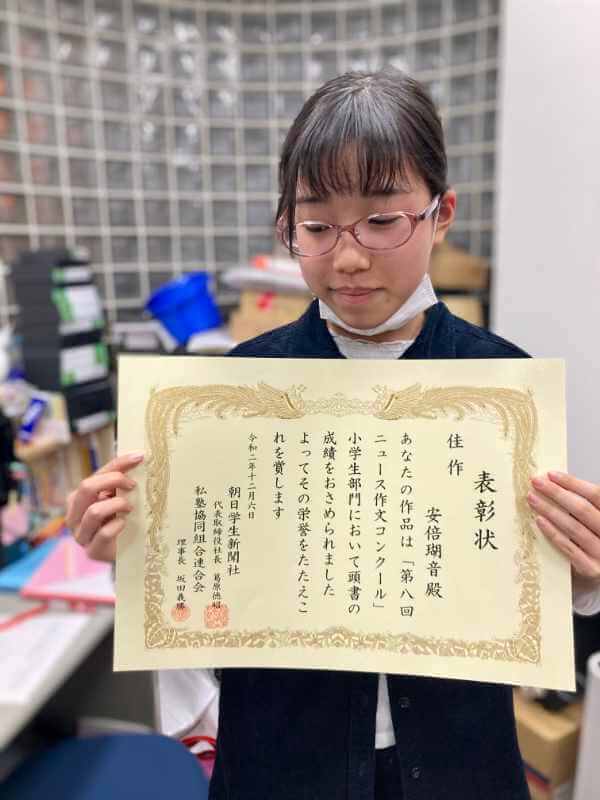 表彰状
佳作
安倍瑚音殿
あなたの作品は「第八回
ニュース作文コンクール」
小学生部門において頭書の
成績をおさめられました
よってその栄誉をたたえこ
れを賞します
令和二年十二月六日
朝日学生新聞社
代表取締役社長 葛原徳昭
私塾協同組合連合会
理事長 坂田義勝